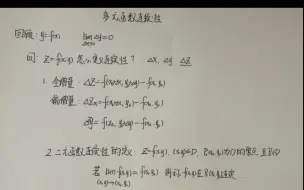 多元函数连续性
回顾: y=f(x) lim Δy=0
Δx→0
问: Z=f(x,y) 怎么定义连续性? Δx, Δy ΔZ
1. 全增量: ΔZ=f(x₀+Δx, y₀+Δy)-f(x₀,y₀)
偏增量: ΔZx=f(x₀+Δx, y₀)-f(x₀,y₀)
f(x₀, y₀+Δy)-f(x₀,y₀)
2. 二元函数连续性的定义: Z=f(x,y), (x,y)∈D, P₀(x₀,y₀)为D的聚点, 且P₀∈D
若 lim f(x,y)=f(x₀,y₀) 则称f(x,y)在P₀(x₀,y₀)连续
(x,y)→(x₀,y₀)